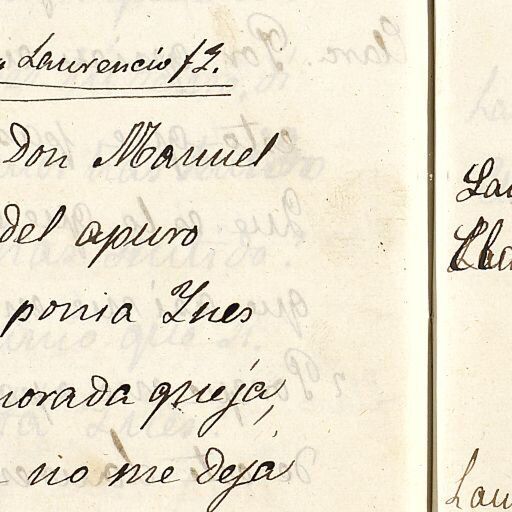 Laurencio
Don Manuel
del apuro
ponia Ynes
morada queja,
no me deja
Lau
Cla
Lau